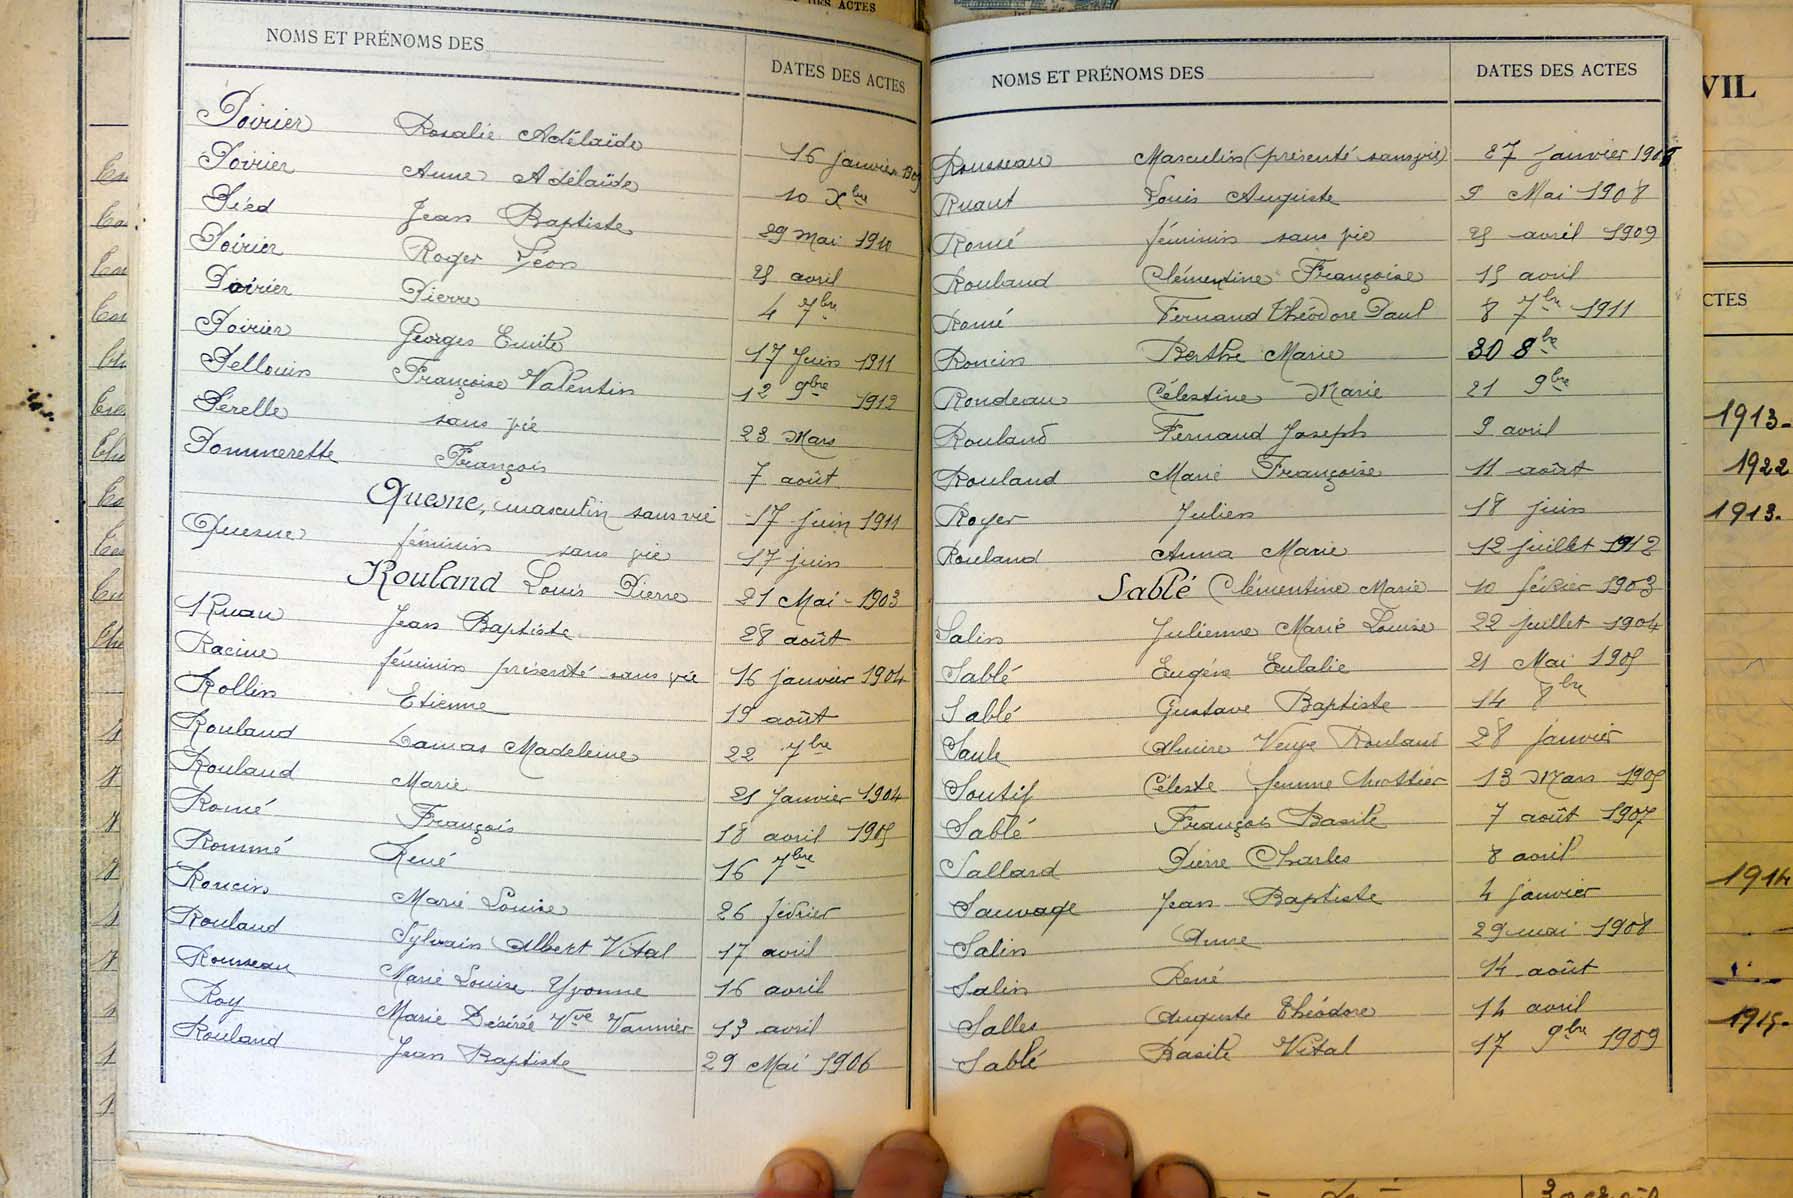 DES ACTES
NOMS ET PRÉNOMS DES
DATES DES ACTES
Poirier Rosalie Adélaïde 16 janvier 1909
Poirier Anne Adélaïde 10 Xbre
Piéd Jean Baptiste 29 Mai 1910
Poirier Roger Léon 25 avril
Poirier Pierre 4 7bre
Poirier Georges Emile 17 Juin 1911
Pellouin Françoise Valentin 12 9bre 1912
Pérelle sans vie 23 Mars
Pommerette François 7 août
Quesne, masculin sans vie 17 juin 1911
Quesne féminin sans vie 17 juin
Rouland Louis Pierre 21 Mai 1903
Ruau Jean Baptiste 28 août
Racine féminin présenté sans vie 16 janvier 1904
Rollin Etienne 19 août
Rouland Madeleine 22 7bre
Rouland Marie 25 Janvier 1904
Romé François 18 avril 1905
Rommé René 16 7bre
Roncin Marie Louise 26 février
Rouland Sylvain Albert Vital 17 avril
Rousseau Marie Louise Yvonne 16 avril
Roy Marie Désirée Vve Vannier 13 avril
Rouland Jean Baptiste 29 Mai 1906
NOMS ET PRÉNOMS DES
DATES DES ACTES
Rousseau Masculin (présenté sans vie) 27 janvier 1908
Ruaut Louis Auguste 9 Mai 1908
Romé féminin sans vie 25 avril 1909
Rouland Clémentine Françoise 15 avril
Romé Fernand Théodore Paul 8 7bre 1911
Roncin Berthe Marie 30 8bre
Rondeau Célestine Marie 21 9bre
Rouland Fernand Joseph 9 avril
Rouland Marie Françoise 11 août
Royer Julien 18 juin
Rouland Anna Marie 12 juillet 1912
Sablé Clémentine Marie 10 février 1903
Salin Julienne Marie Louise 22 juillet 1904
Sablé Eugène Eulalie 21 Mai 1905
Sablé Gustave Baptiste 14 8bre
Saule Veuve Rouland 28 janvier
Soutif Céleste femme 13 Mars 1905
Sablé François Basile 7 août 1907
Salland Pierre Charles 8 avril
Sauvage Jean Baptiste 4 janvier
Salin Anne 29 mai 1908
Salin René 14 août
Salles Auguste Théodore 14 avril
Sablé Basile Vital 17 9bre 1909
VIL
CTES
1913.
1922
1913.
1914
1915.